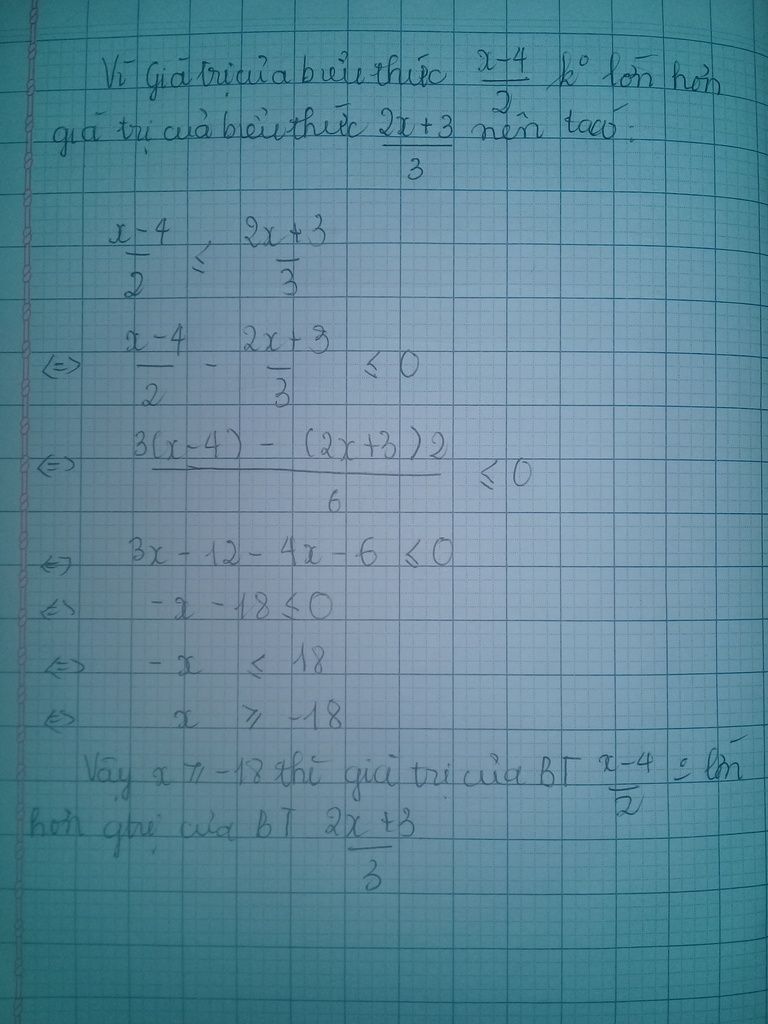 Vì giá trị của biểu thức x-4/2 k° lớn hơn
giá trị của biểu thức 2x+3/3 nên ta có:
x-4/2 ≤ 2x+3/3
<=> x-4/2 - 2x+3/3 ≤ 0
<=> 3(x-4) - (2x+3)2/6 ≤ 0
<=> 3x - 12 - 4x - 6 ≤ 0
<=> -x - 18 ≤ 0
<=> -x ≤ 18
<=> x ≥ -18
Vậy x ≥ -18 thì giá trị của BT x-4/2 lớn
hơn gtrị của BT 2x+3/3